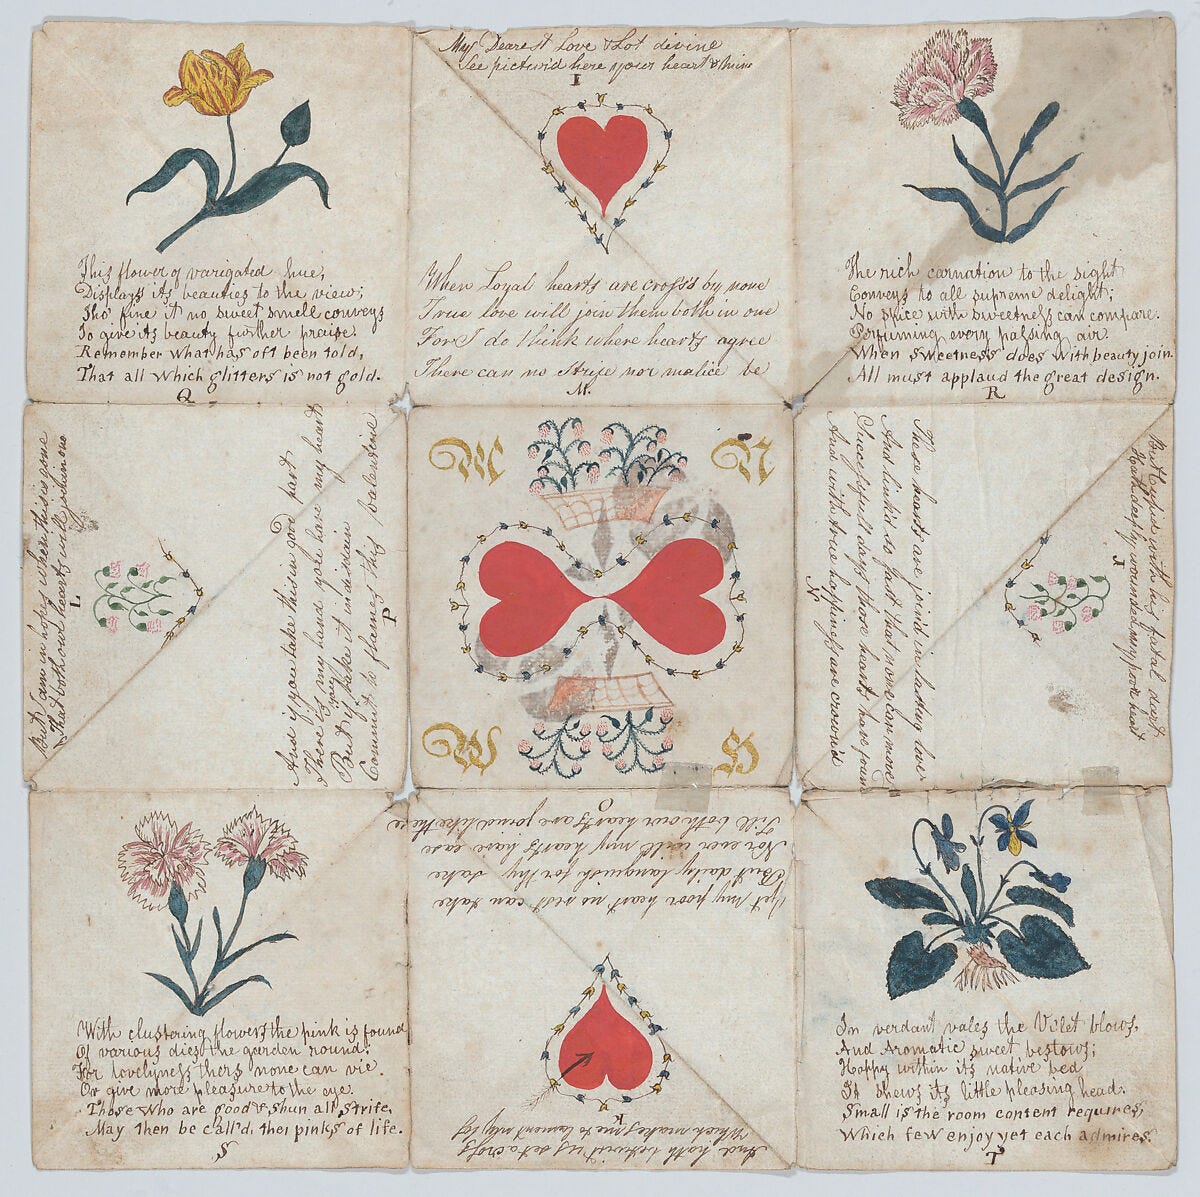 My Dearest Love & Lot divine
See pictur'd here your heart & mine
I
This flower of varigated hue;
Displays its beauties to the view;
Tho' fine it no sweet smell conveys
To give its beauty further praise.
Remember what has oft been told,
That all which glitters is not gold.
Q
When Loyal hearts are cross'd by none
True love will join them both in one
For I do think where hearts agree
There can no Strife nor malice be
M.
The rich carnation to the sight
Conveys to all supreme delight;
No spice with sweetness can compare.
Perfuming every passing air.
When sweetness does with beauty join.
All must applaud the great design.
R
But I am in hopes when this is gone
That both our hearts will join in one
L
And if you take this in good part
There is my hand you have my heart
But if you take it in disdain
Commit to flames this valentine
P
M N
W H
These hearts are join'd in lasting love
And link'd so fast that none can move
Successfull days those hearts have found
And with true happiness are crownd
N
But Cupid with his fatal dart
Hath deeply wounded my poor heart
J
With clustering flowers the pink is found
Of various dies the garden round;
For lovelyness thers none can vie.
Or give more pleasure to the eye.
Those who are good & shun all Strife,
May then be call'd, the pinks of life.
S
Yet my poor heart no rest can take
But daily languish for thy sake
Nor ever will my hearts have ease
Till both our hearts are joined like these
O
And hath betwixt us set a cross
Which makes me to lament my loss
K
In verdant vales the Violet blows,
And Aromatic sweet bestows;
Happy within its native bed
It shews its little pleasing head.
Small is the room content requires;
Which few enjoy yet each admires.
T